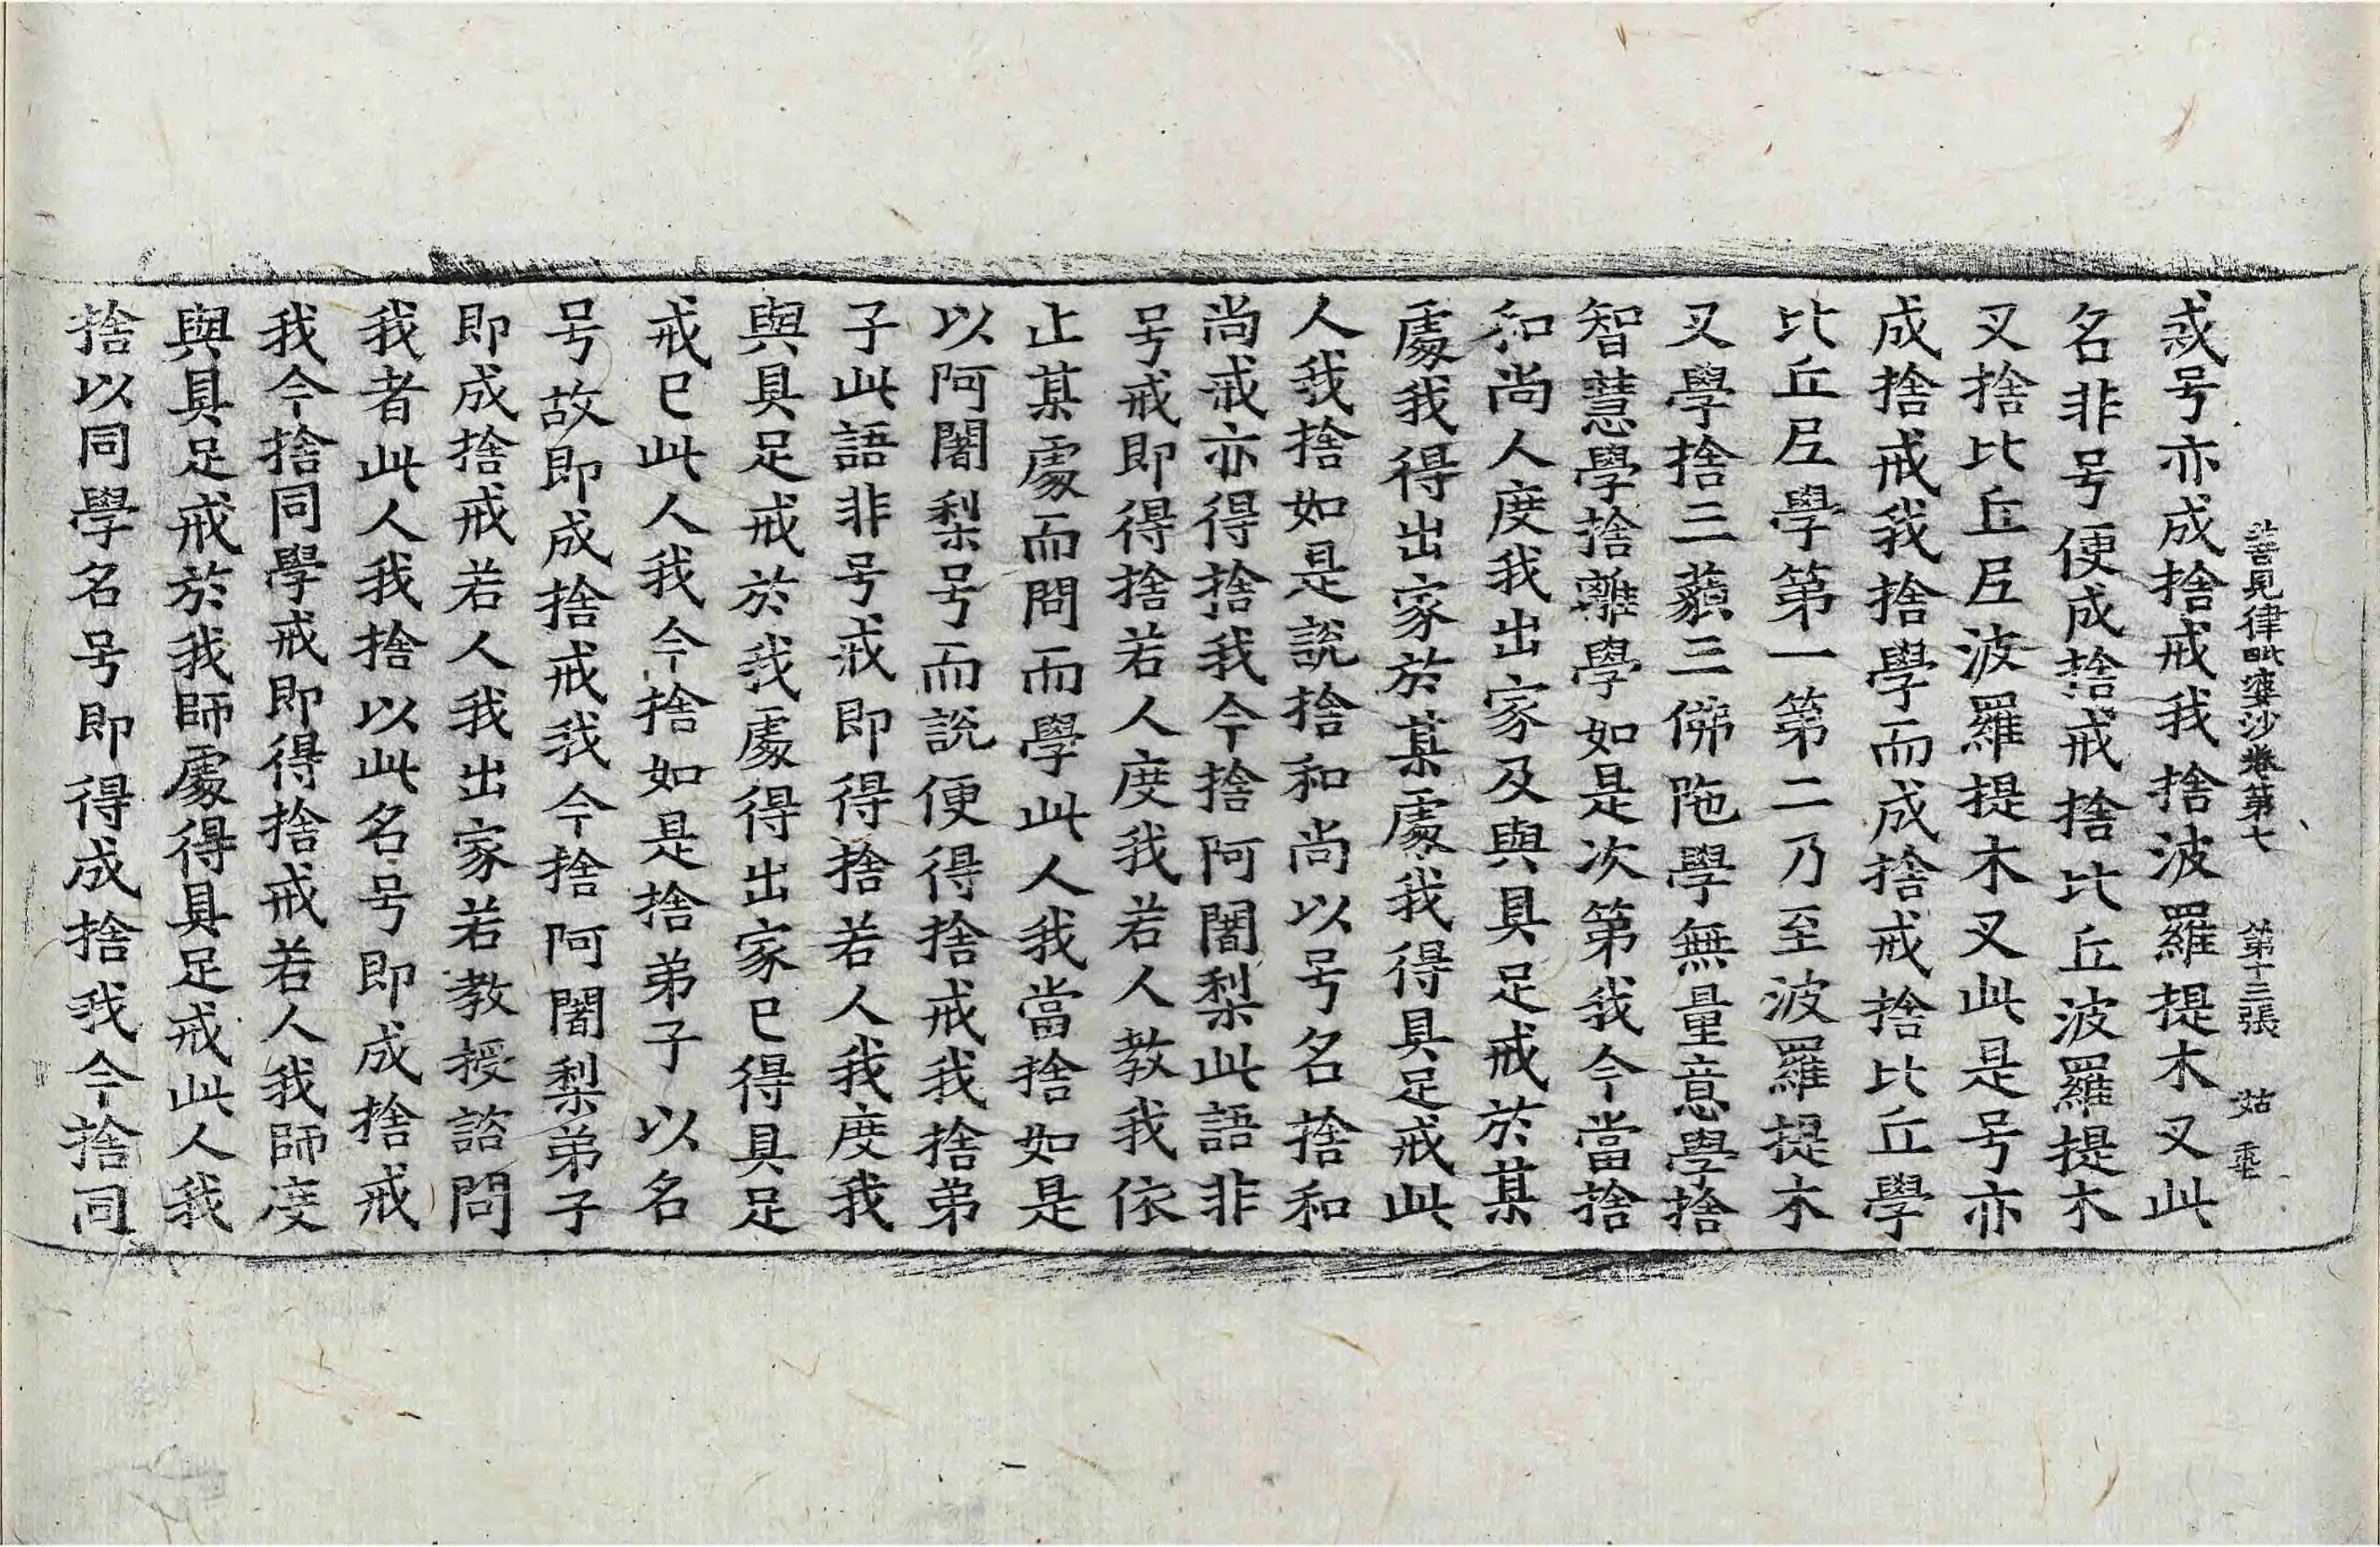 善見律毗婆沙卷第七 第十三張 姑 乖
惑号亦成捨戒我捨波羅提木叉此
名非号便成捨戒捨比丘波羅提木
叉捨比丘𡰱波羅提木叉此是号亦
成捨戒我捨學而成捨戒捨比丘學
比丘𡰱學第一第二乃至波羅提木
叉學捨三藐三佛陁學無量意學捨
智慧學捨離學如是次第我今當捨
和尚人度我出家及與具足戒於某
處我得出家於某處我得具足戒此
人我捨如是說捨和尚以号名捨和
尚戒亦得捨我今捨阿闍梨此語非
号戒即得捨若人度我若人教我依
止某處而問而學此人我當捨如是
以阿闍梨号而說便得捨戒我捨弟
子此語非号戒即得捨若人我度我
與具足戒於我處得出家已得具足
戒已此人我今捨如是捨弟子以名
号故即成捨戒我今捨阿闍梨弟子
即成捨戒若人我出家若教授諮問
我者此人我捨以此名号即成捨戒
我今捨同學戒即得捨戒若人我師度
與具足戒於我師處得具足戒此人我
捨以同學名号即得成捨我今捨同